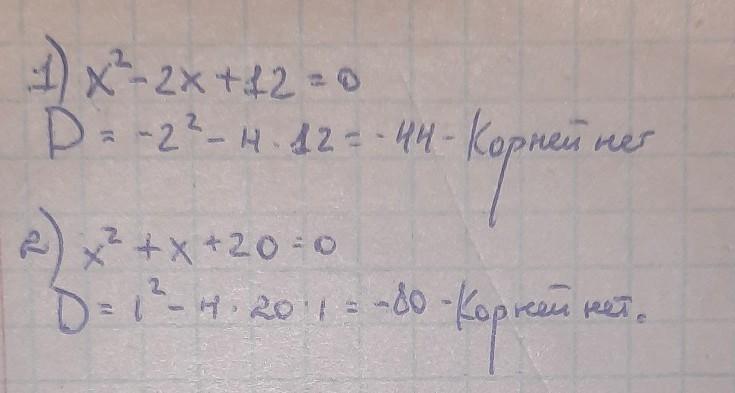 1) x² - 2x + 12 = 0
D = -2² - 4 · 12 = -44 - Корней нет
2) x² + x + 20 = 0
D = 1² - 4 · 20 · 1 = -80 - Корней нет.